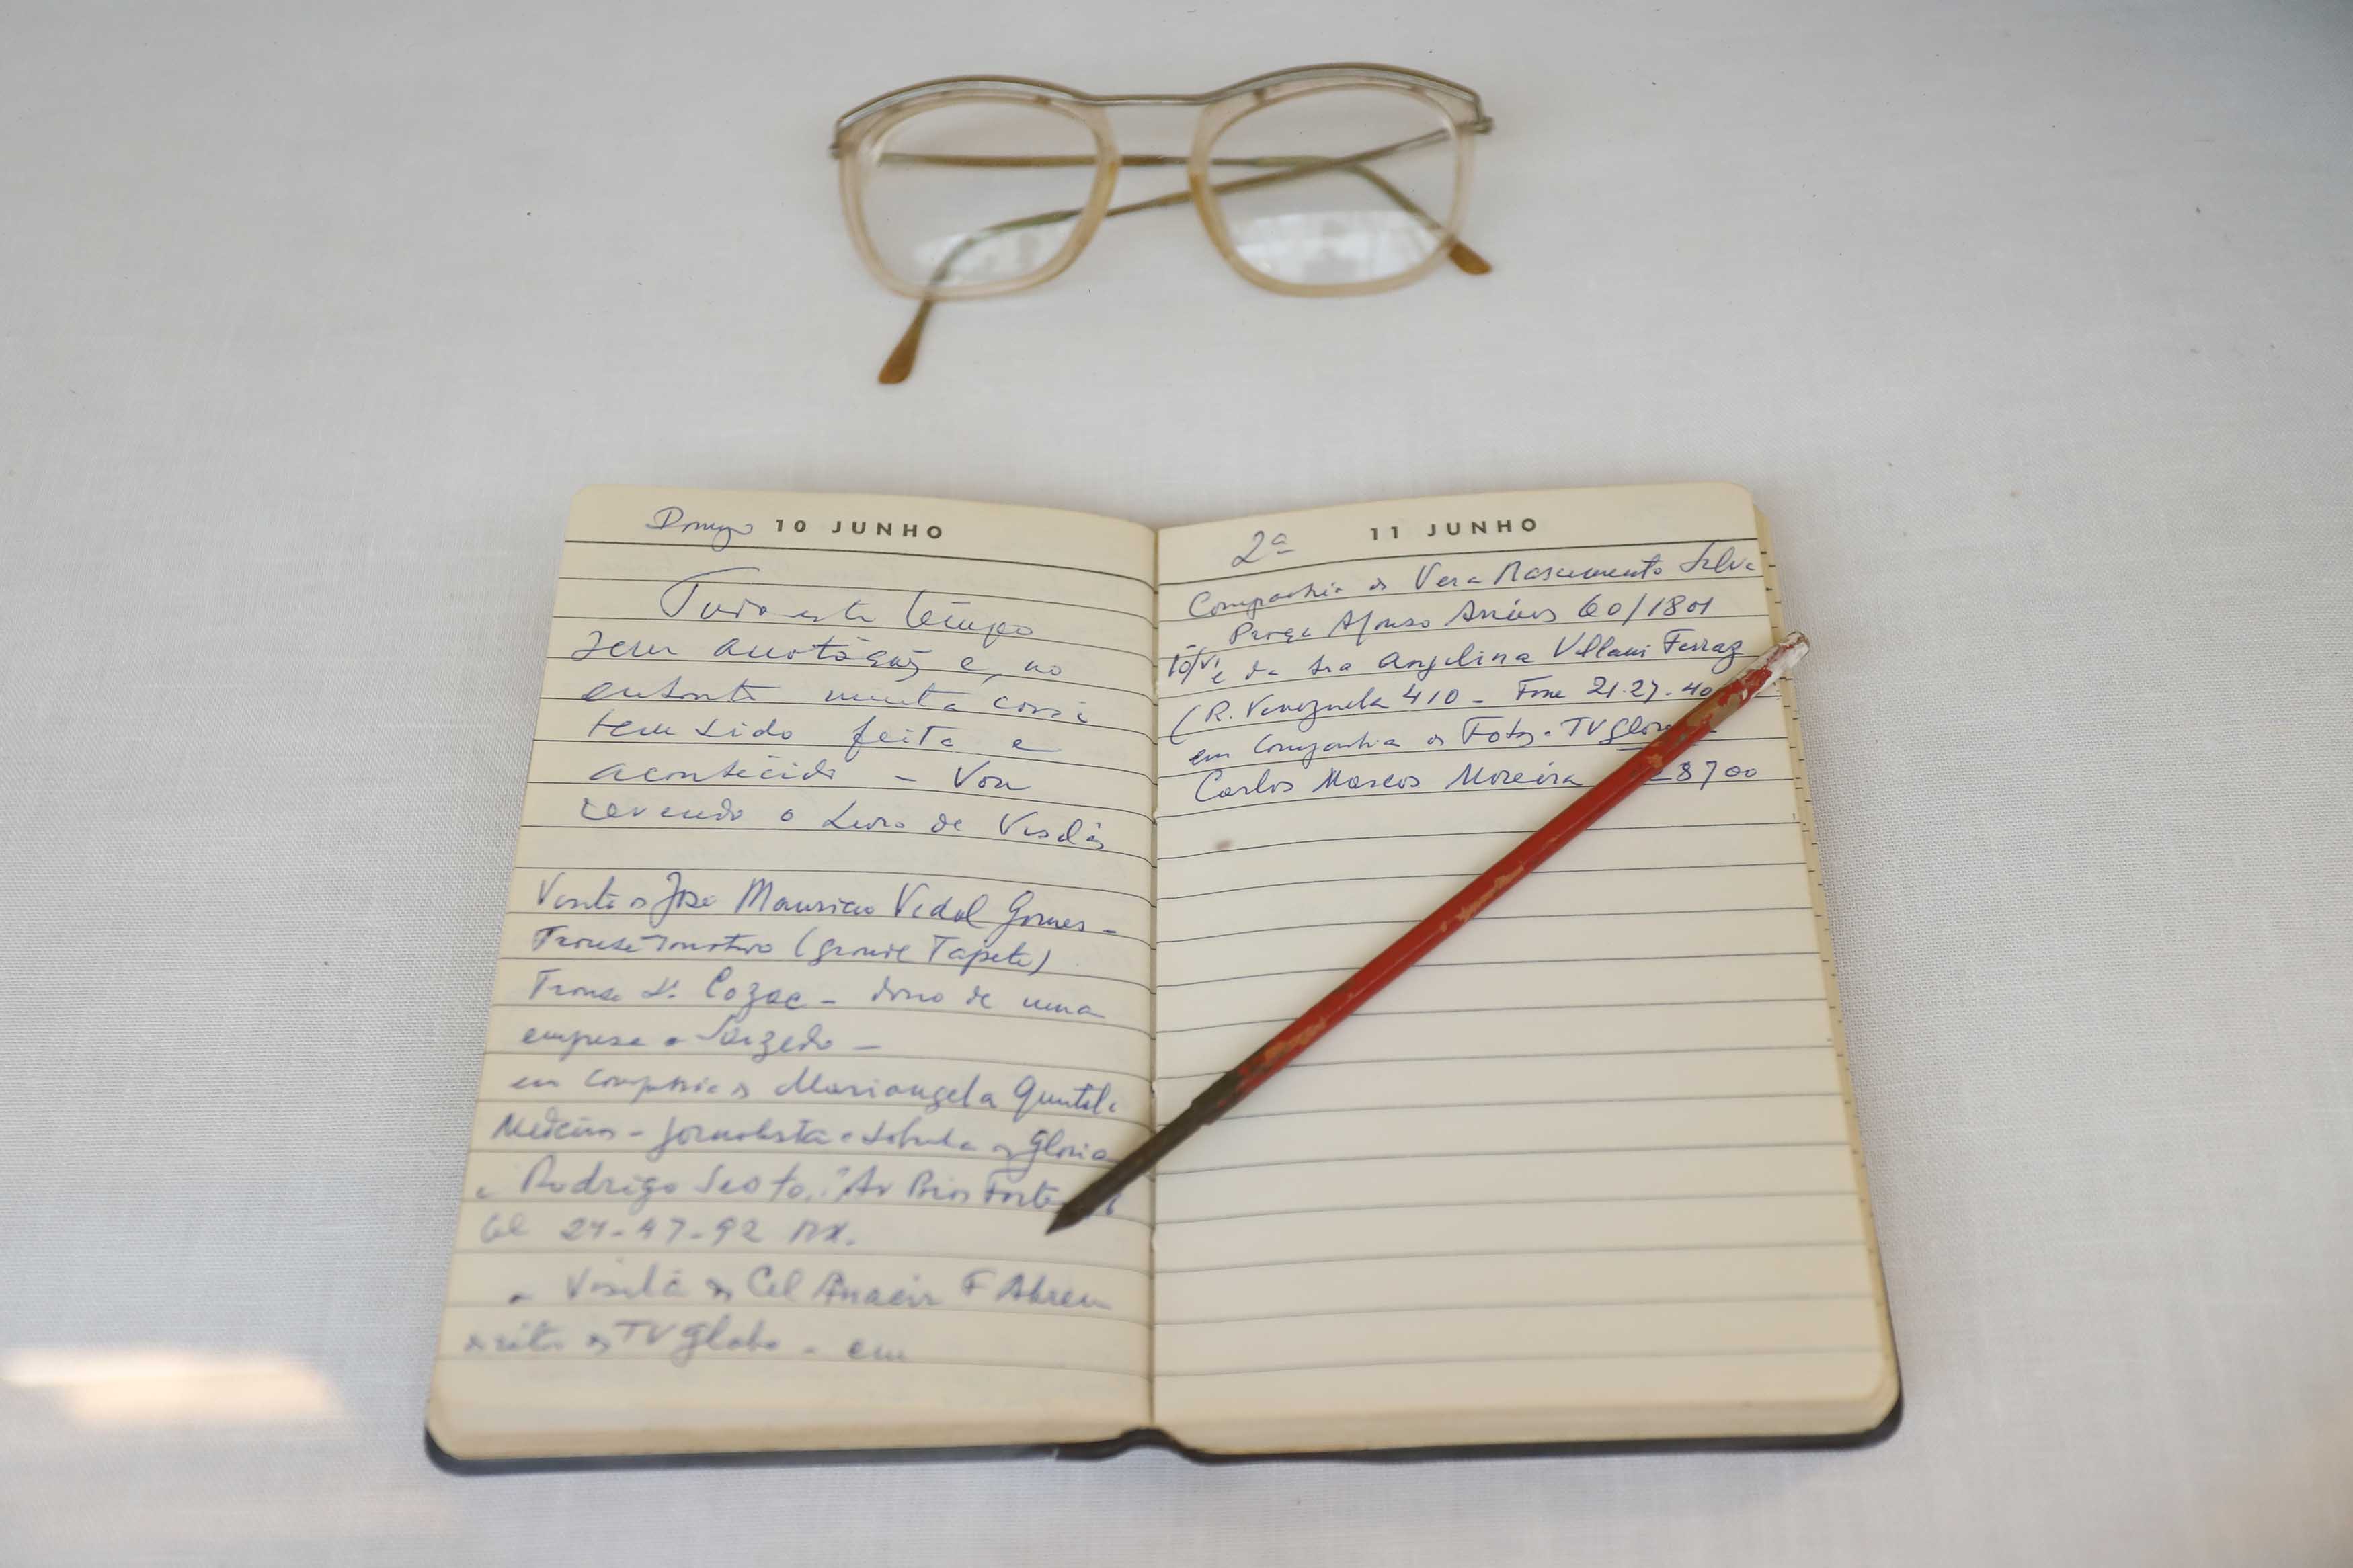 Domingo 10 JUNHO
Tudo este tempo
sem anotações e, no
entanto muita coisa
tem sido feita e
acontecido – Vou
revendo o Livro de Visitas
Visita de José Mauricio Vidal Gomes –
Trouxe (grande Tapete)
Trouxe Cozac – dono de uma
empresa Sarzedo –
em companhia de Mariangela
Medeiros – jornalista e da Gloria
e Rodrigo Av Bias Fortes
tel 24-47-92
– Visita do Cel F Abreu
TV Globo – em
2ª 11 JUNHO
Companhia de Vera Nascimento Silva
Praça Afonso Arinos 60/1801
e da Sra Angelina Villani Ferraz
(R. Venezuela 410 – Fone 21-27-40
em Companhia do Fotog. TV Globo
Carlos Marcos Moreira 8700